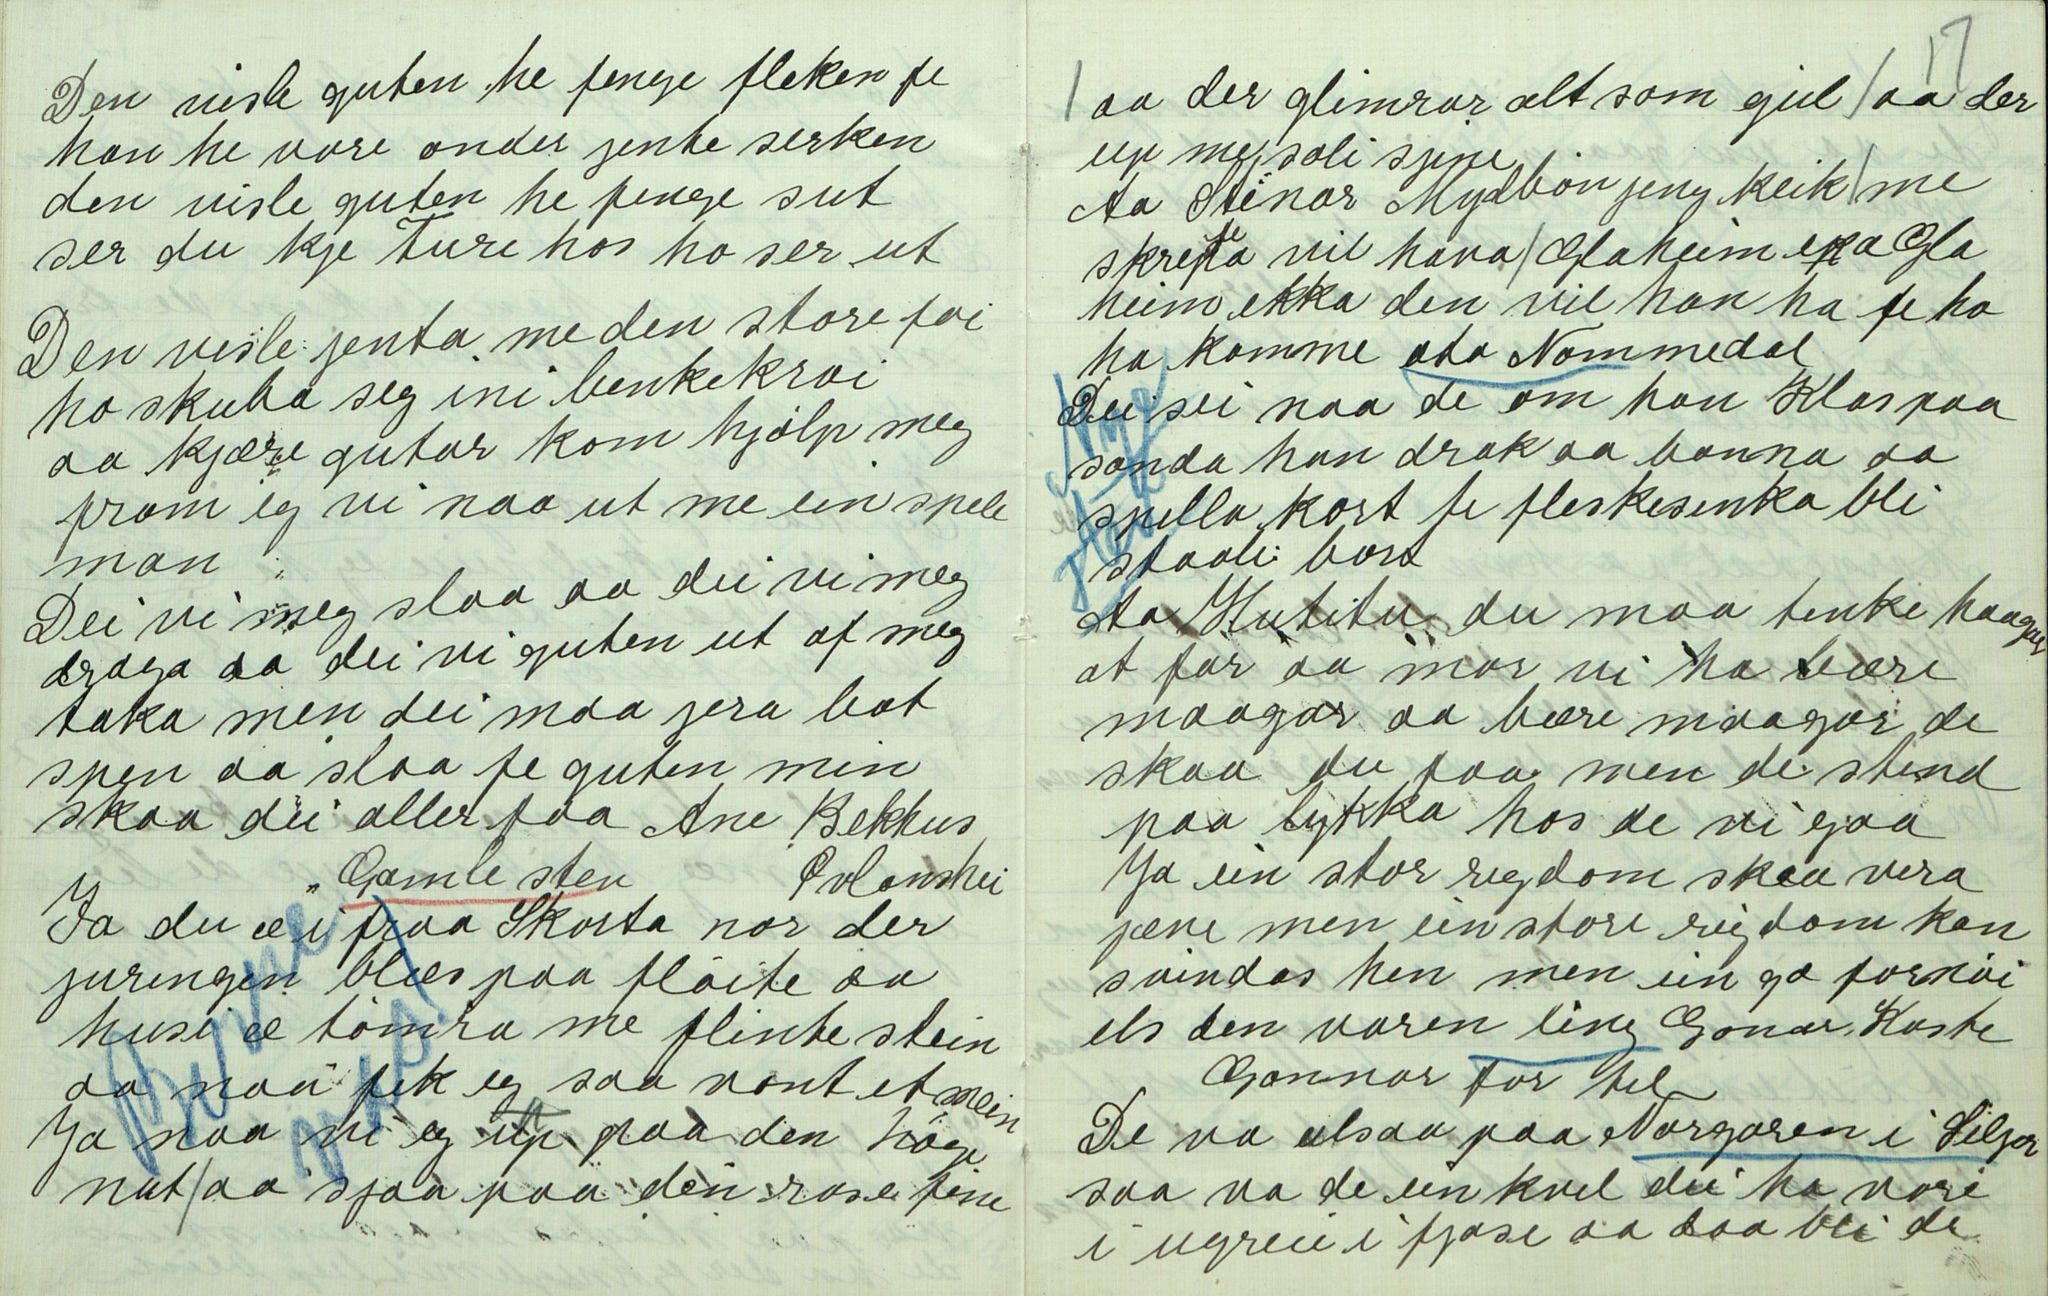 Den visle guten he fenge fleken fe
han he vore onder jente serken
den visle guten he fenge sut
ser du kje Ture hos ho ser ut
Den visle jenta me den store foi
ho skuba seg ini benkekroi
aa kjære gutar kom hjölp meg
fram eg vi naa ut me ein spele
man
Dei vi meg slaa aa dei vi meg
draga aa dei vi guten ut af meg
taka men dei maa jera bot
spen aa slaa fe guten min
skaa dei aller faa Ane Bekhus
Gamle sten
Ja du æ i fraa Skorta nor der
juringen blæs paa flöite aa
husi æ tömra me flinte stein
aa naa fek eg saa vont et mein
Ja naa vi eg up paa den höge
nut/aa sjaa paa den rose fine
17
/aa der glimrar alt som gul/aa der
up me soli sjine
Aa Steinar Mydbön jeng keik/me
vil hava/Glaheim Gla
heim ekka den vil han ha fe ho
ha komme ata Nommedal
Dei sei naa de om han Klas paa
sanda han drak aa banna aa
spella kort fe fleskesinka bli
staali bort
Aa Hutitu du maa tenke haagar
at far aa mor vi ha bære
maagar aa bære maagar de
skaa du faa men de stend
paa lykka hos de vi gaa
Ja ein stor regdom skaa vera
jæve men ein store reigdom kan
svindas hen men ein ga fornöi
els den varen leng Gonar Kaste
Gonnar for tel
De va alsaa paa Norgaren i Siljor
saa va de ein kvel dei ha vori
i ugreie i fjøse aa daa blei de